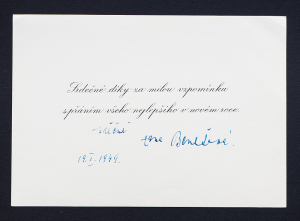 Srdečné díky za milou vzpomínku
s přáním všeho nejlepšího v novém roce.
Benešová
19.I.1949.